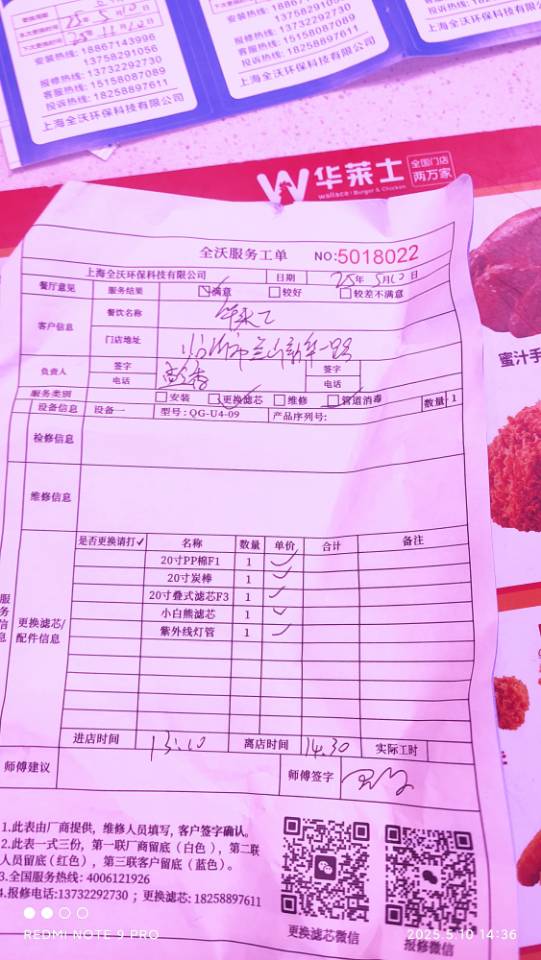 25年5月10日
25.11.10
安装热线: 18867143996
13758291056
报修热线: 13732292730
客服热线: 15158087089
投诉热线: 18258897611
上海全沃环保科技有限公司
13758291056
报修热线: 13732292730
客服热线: 15158087089
投诉热线: 18258897611
上海全沃环保科技有限公司
上海全沃环保科技有限公司
华莱士
wallace | Burger & Chicken
全国门店
两万家
蜜汁手
全沃服务工单 NO:5018022
上海全沃环保科技有限公司 日期 25年5月10日
餐厅意见 服务结果 满意 较好 较差不满意
客户信息 餐饮名称 华莱士
门店地址 临沂市兰山新华一路
负责人 签字 签字
电话 电话
服务类别 安装 更换滤芯 维修 管道消毒 数量 1
设备信息 设备一 型号: QG-U4-09 产品序列号:
检修信息
维修信息
服务信息
更换滤芯/
配件信息
是否更换请打✓ 名称 数量 单价 合计 备注
20寸PP棉F1 1 ✓
20寸炭棒 1 ✓
20寸叠式滤芯F3 1 ✓
小白熊滤芯 1 ✓
紫外线灯管 1 ✓
进店时间 13:10 离店时间 14.30 实际工时
师傅建议 师傅签字
1.此表由厂商提供，维修人员填写，客户签字确认。
2.此表一式三份，第一联厂商留底（白色），第二联
人员留底（红色），第三联客户留底（蓝色）。
3.全国服务热线: 4006121926
4.报修电话:13732292730 ；更换滤芯: 18258897611
更换滤芯微信
报修微信
REDMI NOTE 9 PRO
2025.5.10 14:36